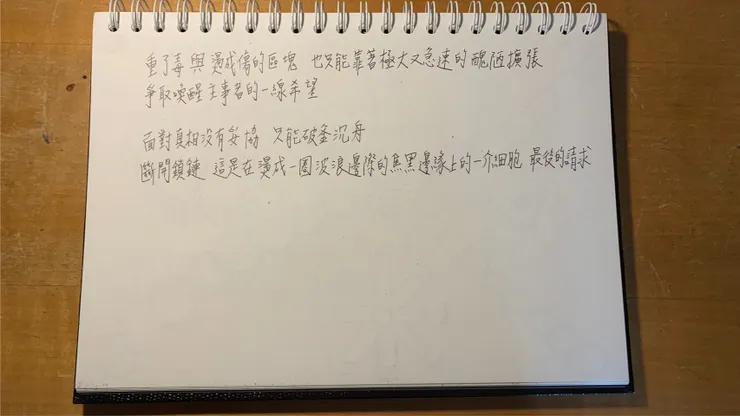 重了毒與燙成傷的區塊 也只能靠著極大又急速的醜陋擴張
爭取喚醒主事者的一線希望
面對真相沒有妥協 只能破釜沉舟
斷開鎖鏈 這是在燙成一圈波浪邊際的焦黑邊緣上的一介細胞 最後的請求